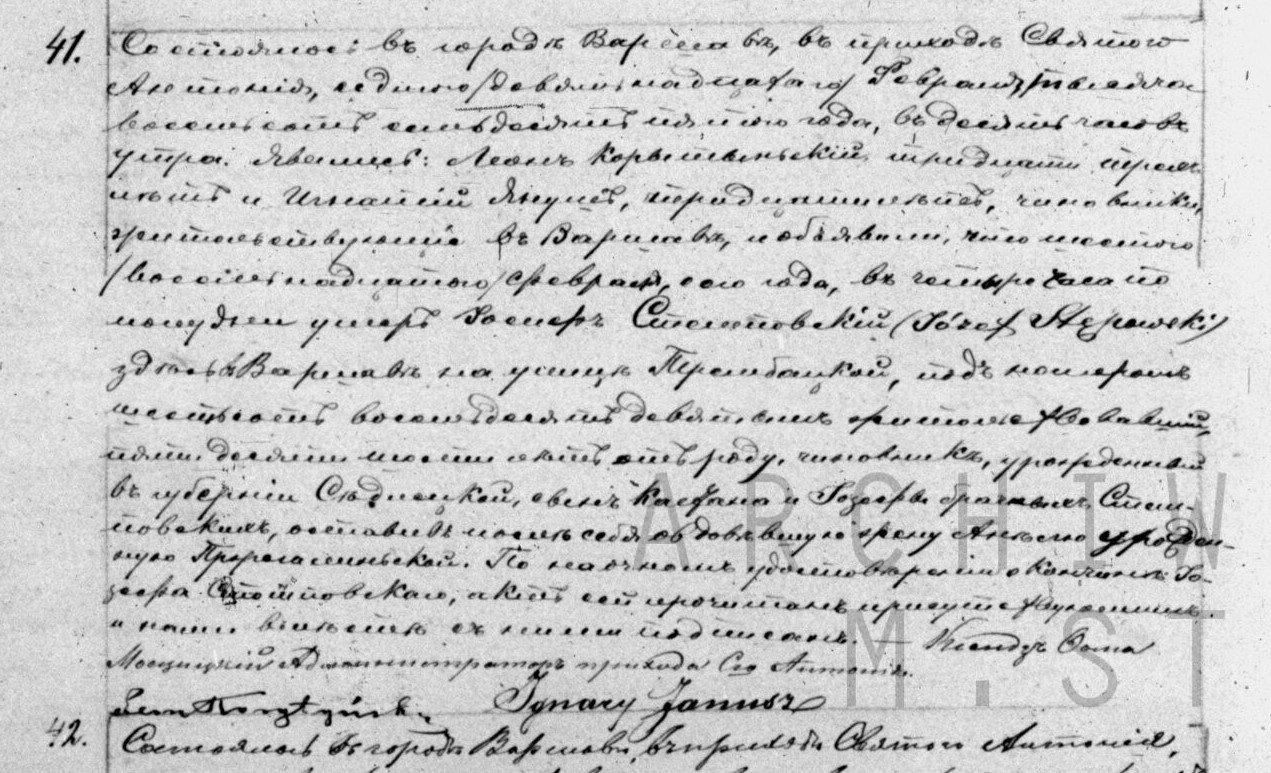 41. Состоялось въ городѣ Варшавѣ, въ приходѣ Святого
Антонія, седьмого /девятнадцатаго/ Февраля, тысяча
восемьсотъ семьдесятъ пятого года, въ десять часовъ
утра. Явились: Леонъ Корытыньскій, тридцати трехъ
лѣтъ и Игнатій Янушъ, тридцатилѣтній, чиновники,
жительствующіе въ Варшавѣ, и объявили, что шестого
/восемьнадцатого/ Февраля, сего года, въ четыре часа по
полудни умеръ Іосифъ Стемповскій (Józef Stępowski)
здѣсь въ Варшавѣ на улицѣ Трембацкой, подъ номеромъ
шестьсотъ восемьдесятъ девятымъ жительствовавшій,
пятидесяти шести лѣтъ отъ роду, чиновникъ, урожденный
въ губерніи Сѣдлецкой, сынъ Каетана и Іозефы брачныхъ Стем-
повскихъ, оставивъ послѣ себя овдовѣвшую жену Анелю урожден-
ную По наочномъ удостовѣреніи о кончинѣ Іо-
зефа Стемповскаго, актъ сей прочитанъ присутствующимъ
и нами вмѣстѣ съ ними подписанъ. — Ксендзъ Ѳома
Администраторъ прихода Сго Антонія.
Leon Korytyński Ignacy Janusz
42. Состоялось въ городѣ Варшавѣ, въ приходѣ Святого Антонія,
ARCHIW
M.ST